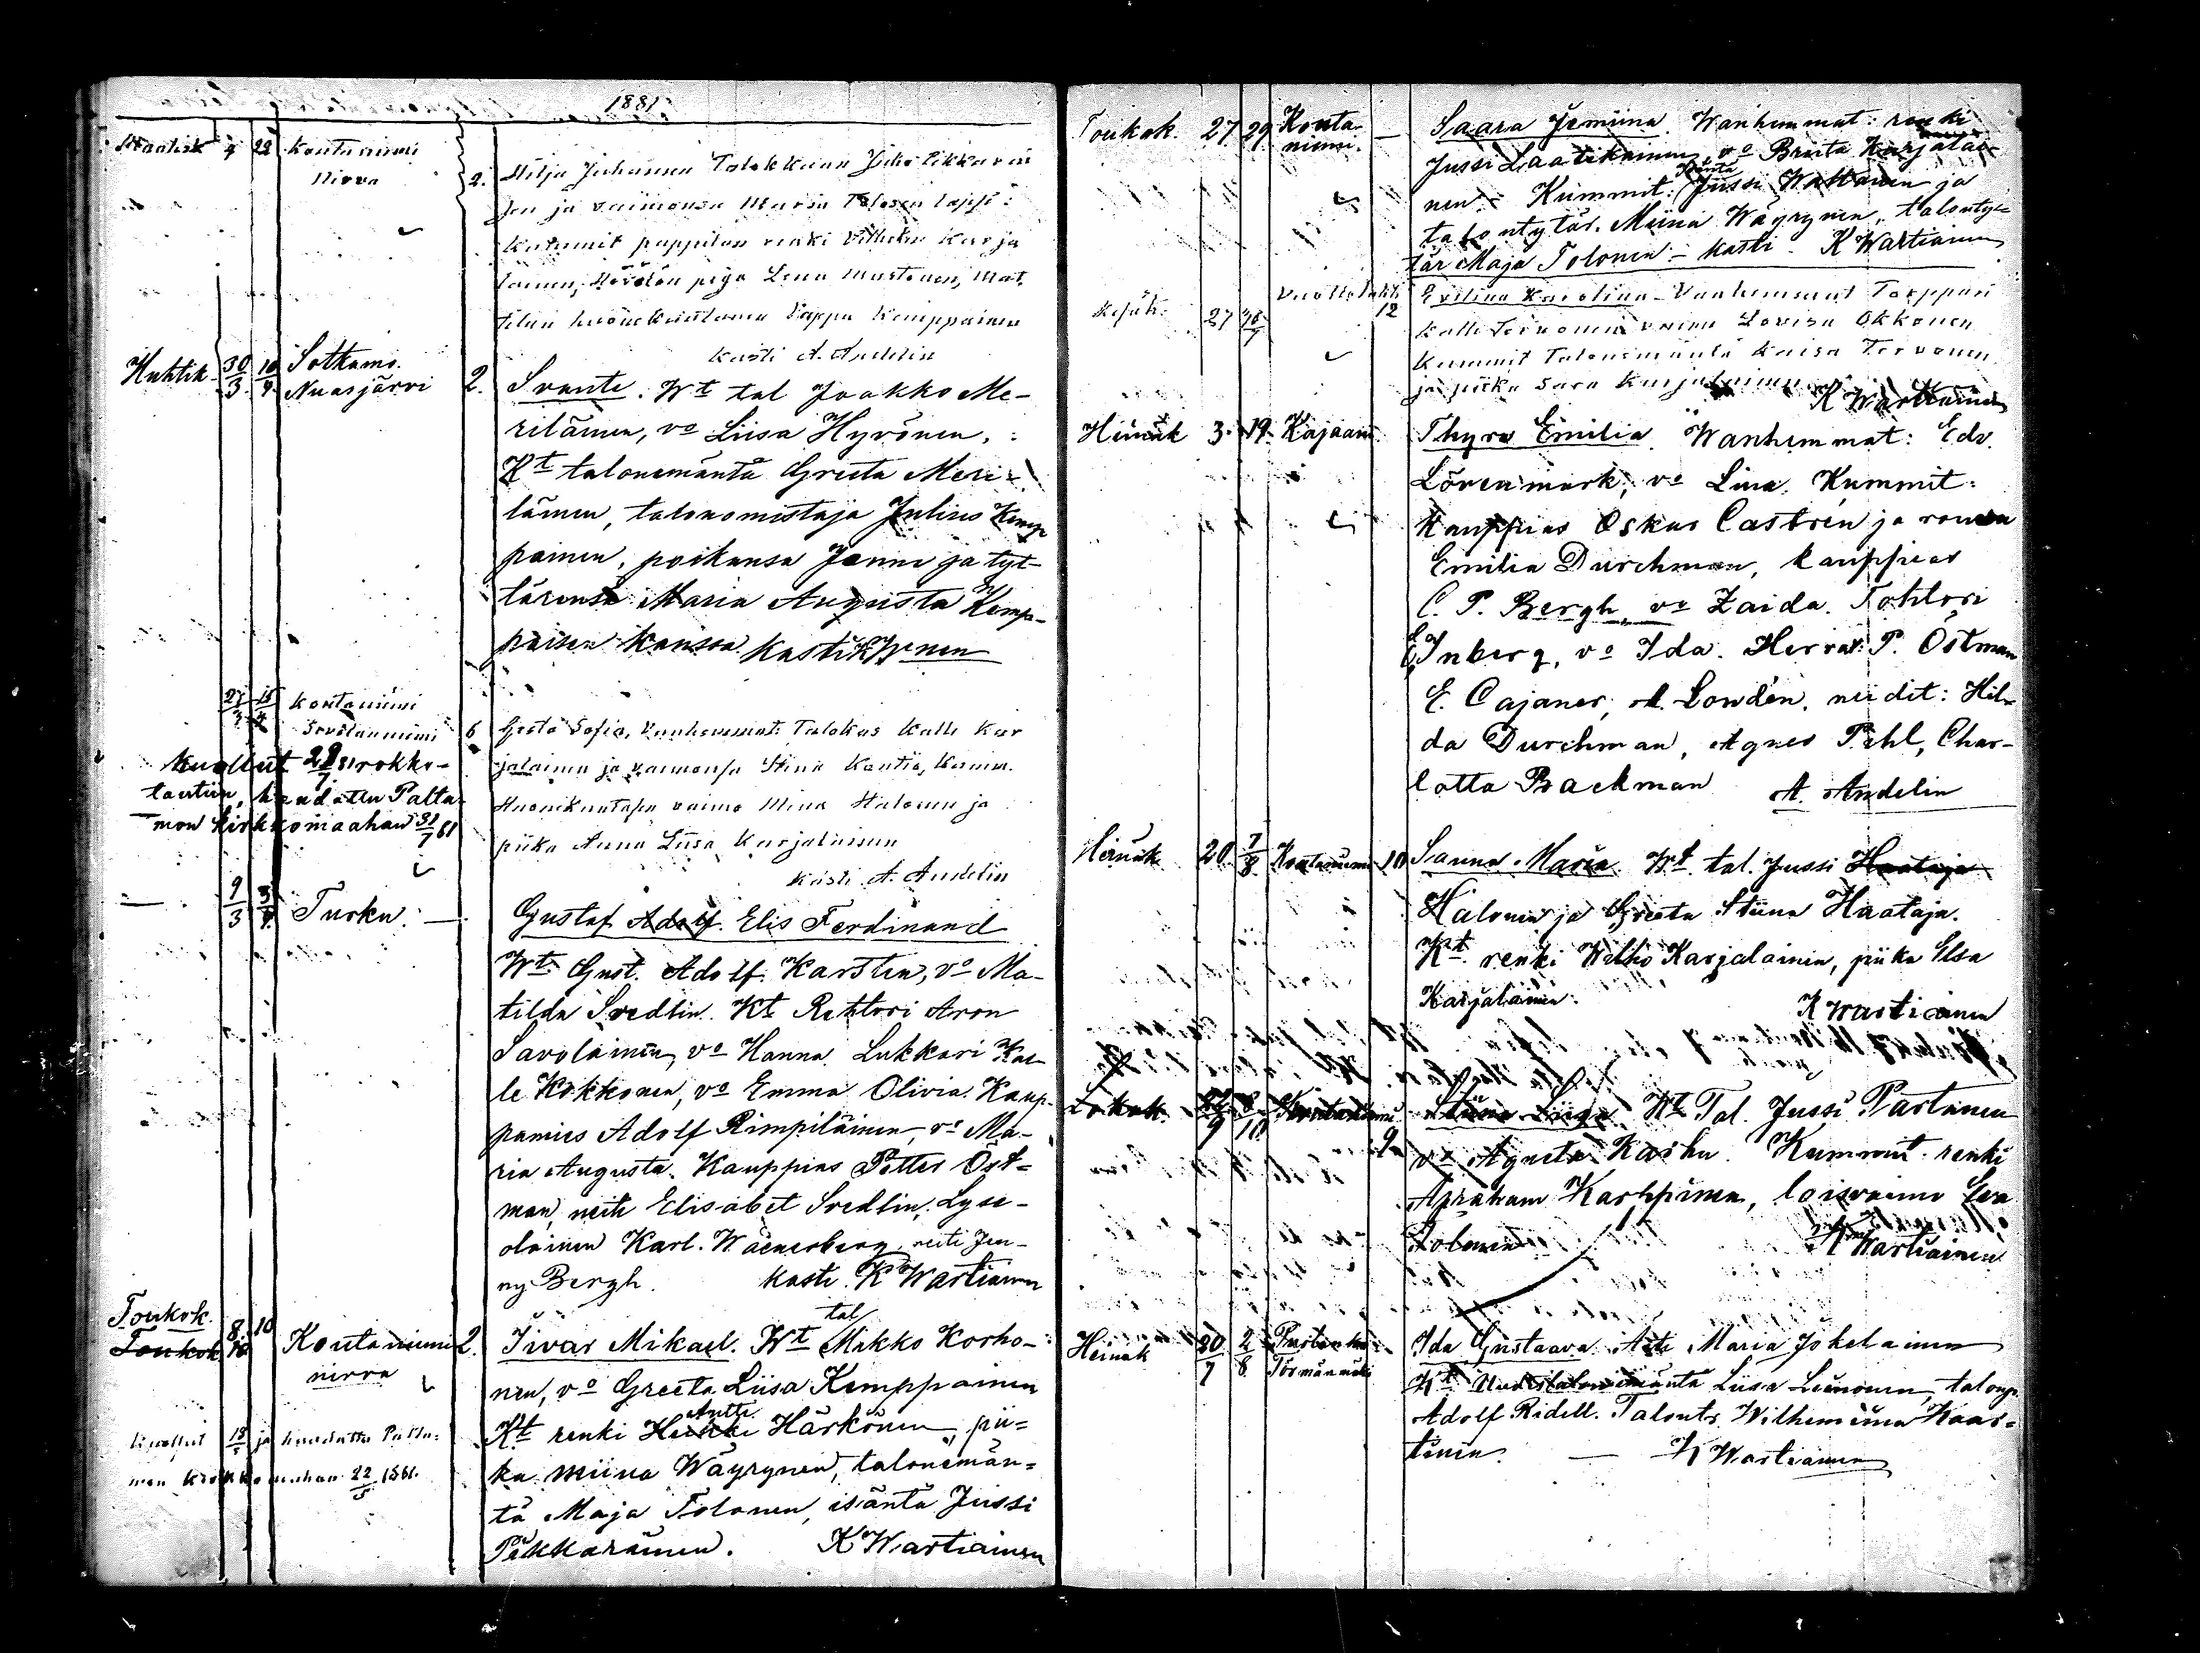 1881
Maalisk 22 Koutaniemi
Hilja Johanna Talokkaan Juho Pikkarai
Nivva 2.
sen ja vaimonsa Maria Tolosen lapsi:
Kummit pappilan renki Vilhelm Karja
lainen, piga Lena Mustonen, Mat.
tilan huonekuntanen Vappu Kemppainen
kasti A. Andelin
Huhtik 30/3 10/4 Sotkamo.
Nuasjärvi 2. Svante. Wt tal Jaakko Me-
riläinen, vo Liisa Hyvönen.
Kt talonemäntä Greeta Meri-
läinen, talonomistaja Julius Kemp
painen, poikansa Janne ja tyt-
tärensä Maria Augusta Kemp-
paisen kanssa kasti KWnen
27/3 15/4 Koutaniemi
6 Greta Sofia, Vanhemmat: Talokas Kalle Kar
jalainen ja vaimonsa Stina Kantia, Kumm.
Huonekuntasen vaimo Mina Halonen ja
piika Anna Liisa Karjalainen
kasti A. Andelin
Kuollut 29/7 81 rokko-
tautiin, haudattu Palta-
mon kirkkomaahan 31/7 81
— 9/3 3/4 Turku. —
Gustaf Adolf Elis Ferdinand
Wt Gust. Adolf Karsten, vo Ma-
tilda Svedlin. Kt Rehtori Aron
Savolainen, vo Hanna Lukkari Kal
le Kokkonen, vo Emma Olivia. Kaup-
pamies Adolf Rimpiläinen, vo Ma-
ria Augusta. Kauppias Petter Öst-
man, neiti Elisabet Svedlin, Lyse-
olainen Karl. Wacnerberg, neiti Jen-
ny Bergh. kasti K Wartiainen
Toukok. 8. 10
Toukok Koutaniemi 2.
nivva
tal
Iivar Mikael. Wt Mikko Korho-
nen, vo Greeta Liisa Kemppainen
Antti
Kt renki Heikki Härkönen, pii-
ka Miina Wäyrynen, talonemän-
tä Maja Tolonen, isäntä Jussi
Pikkarainen. K Wartiainen
Kuollut 18/5 ja haudattu Palta-
mon kirkkomaahan 22/5 1881.
Toukok. 27 29 Kouta-
niemi. — Saara Jemiina. Wanhemmat: renki
Jussi Laatikainen, vo Briita Karjalai-
nen. Kummit: Renki Jussi Wattanen ja
talontytär. Miina Wäyrynen, talonty-
tär Maja Tolonen – kasti K Wartiainen
Kesäk. 27 Vuottolahti
12 Evelina Karolina – Vanhemmat Torppari
Kalle Tervonen vaimo Lovisa Okkonen
Kummit Talonemäntä Kaisa Tervonen
ja piika Sara Karjalainen
K Wartiainen
Heinäk 3. 19. Kajaani Thyra Emilia. Wanhemmat: Edv.
Lövenmark, vo Lina. Kummit:
Kauppias Oskar Castrén ja rouva
Emilia Durchman, kauppias
C. P. Bergh, vo Zaida. Tohtori
E. Inberg, vo Ida. Herrat: P. Östman
E. Cajaner, A. Lowdén, neidit: Hil-
da Durchman, Agnes Pihl, Char-
lotta Backman A. Andelin
Heinäk 20. 7/8 Koutaniemi 10 Sanna Maria. Wt. tal. Jussi Haataja
Halonen ja Greeta Stiina Haataja.
Kt. renki Wilho Karjalainen, piika Elsa
Karjalainen.
K Wartiainen
Lokak. Koutaniemi Stiina Liisa. Wt Tal. Jussi Partanen
9 vo Agneta Karhu. Kummit renki
Apraham Karppinen, loisvaimo Eva
Tolonen
K Wartiainen
Heinäk 20/7 2/8
Törmänmäki
Ida Gustaava. Äiti Maria Jokelainen
Kt Uudistalonemäntä Liisa Leinonen, talonp.
Adolf Ridell. Talontr. Wilhemiina Kaar-
tinen. — K Wartiainen